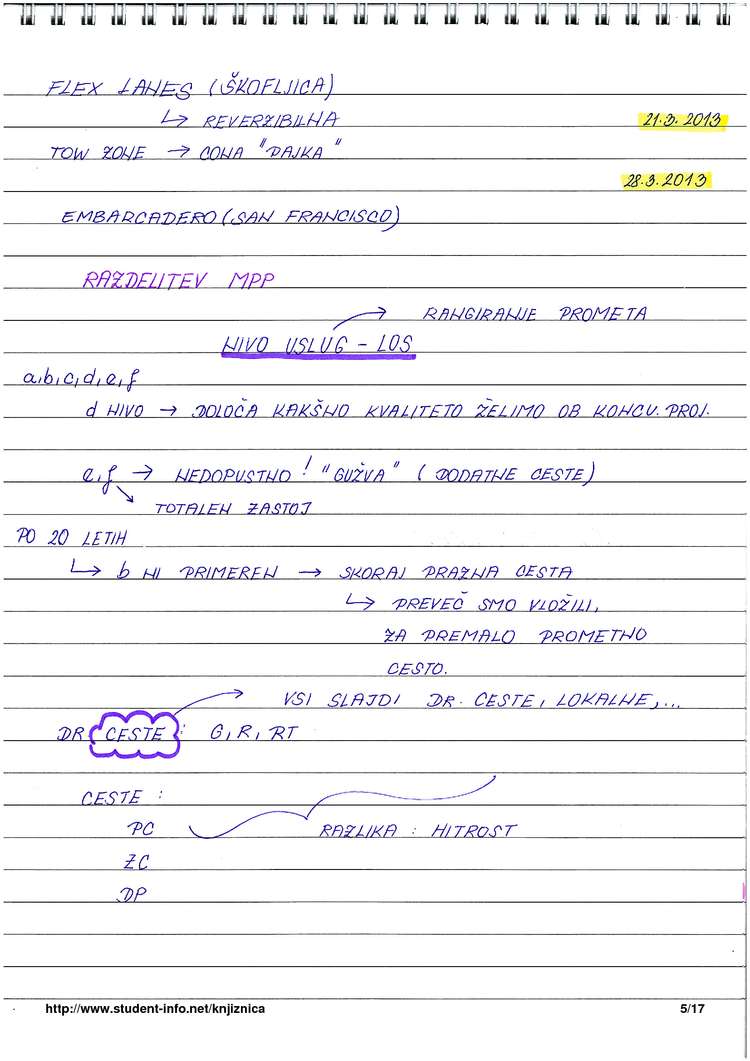 FLEX LANES (ŠKOFLJICA)
↳ REVERZIBILNA
21.3.2013
TOW ZONE → CONA "PAJKA"
28.3.2013
EMBARCADERO (SAN FRANCISCO)
RAZDELITEV MPP
→ RANGIRANJE PROMETA
NIVO USLUG - LOS
a,b,c,d,e,f
d NIVO → DOLOČA KAKŠNO KVALITETO ŽELIMO OB KONCU. PROJ.
e,f → NEDOPUSTNO! "GUŽVA" (DODATNE CESTE)
↘ TOTALEN ZASTOJ
PO 20 LETIH
↳ b NI PRIMEREN → SKORAJ PRAZNA CESTA
↳ PREVEČ SMO VLOŽILI,
ZA PREMALO PROMETNO
CESTO.
→ VSI SLAJDI DR. CESTE, LOKALNE,...
DR CESTE : G, R, RT
CESTE :
PC RAZLIKA : HITROST
ZC
DP
http://www.student-info.net/knjiznica 5/17